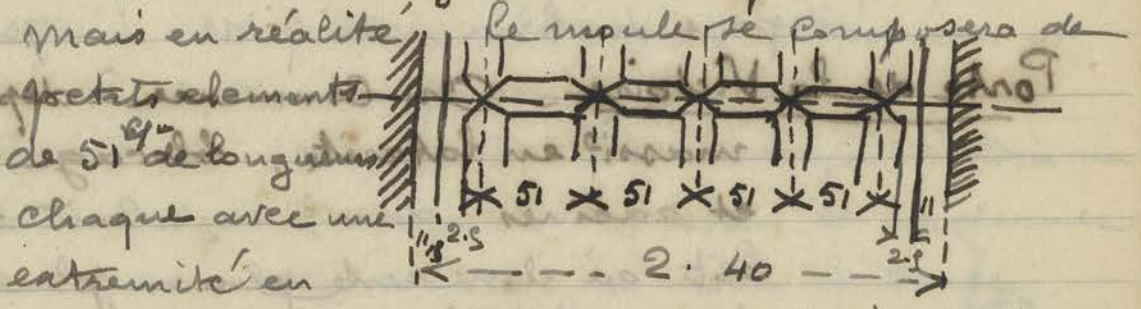 mais en réalité, le moule se composera de
petits elements
de 51 c/m de longueur
chaque avec une
extremité en
51 51 51 51
2.5 2.5
2.40